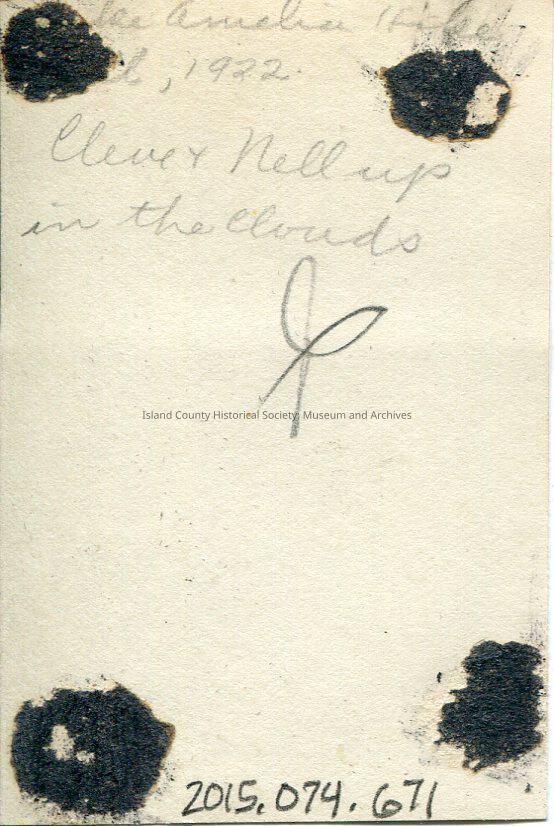 Amelia Hike
, 1922.
Clever Nell up
in the Clouds
Island County Historical Society, Museum and Archives
2015.074.671